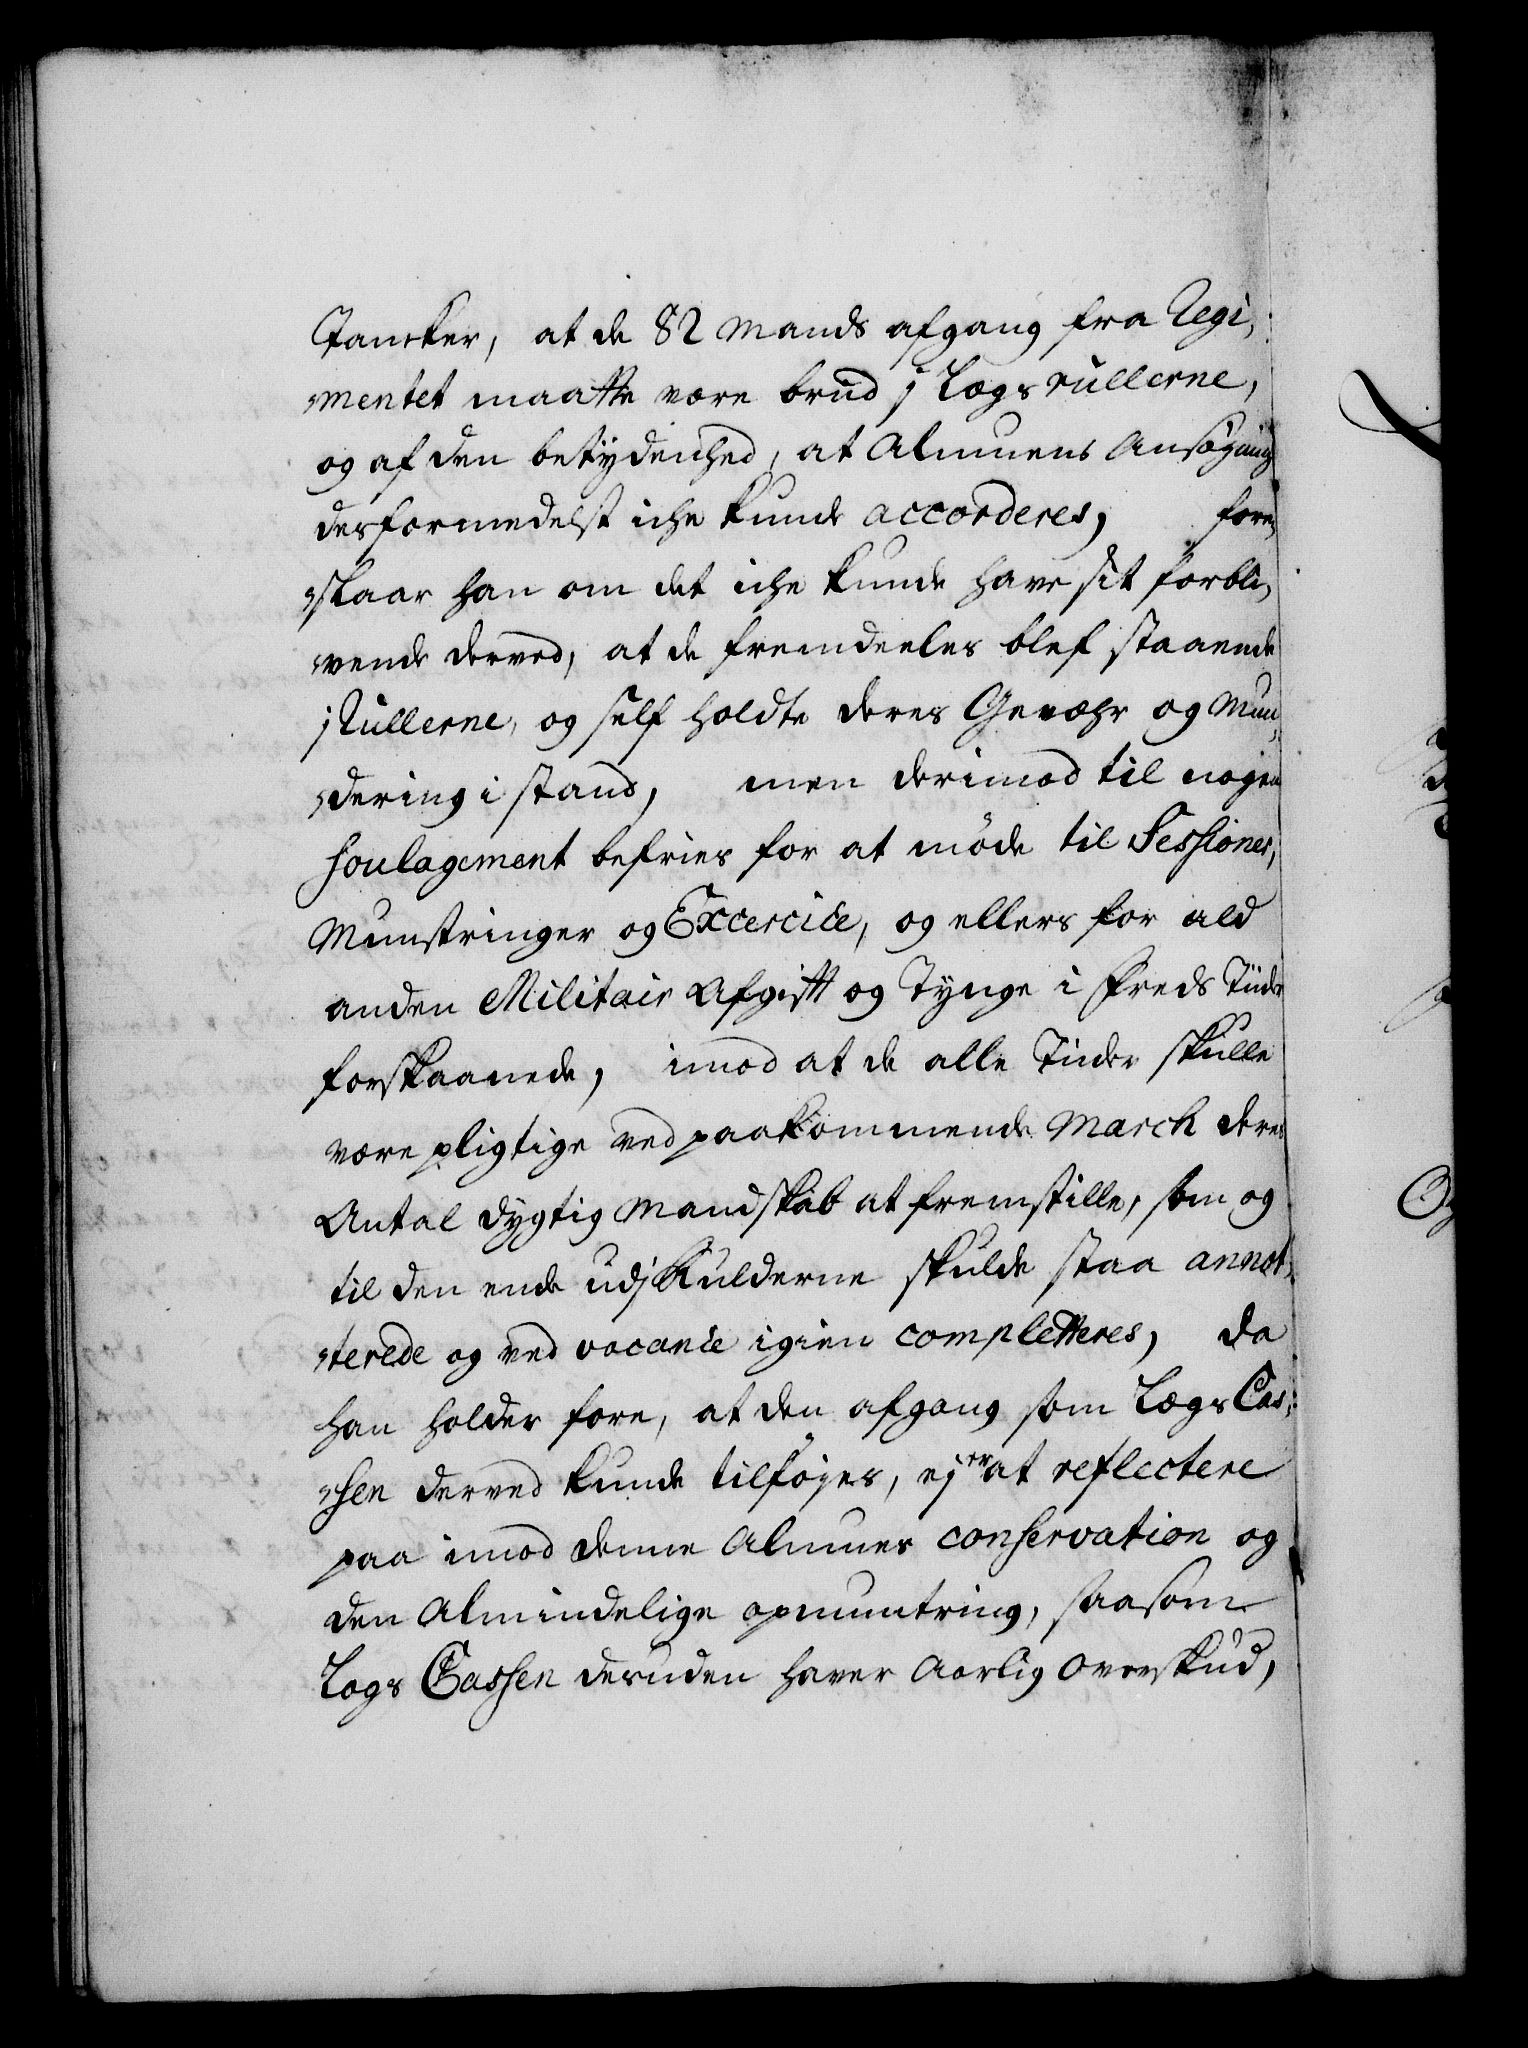 Tancker, at de 82 Mands afgang fra Regi,
mentet maatte være brud j Lægs rullerne,
og af den betydenhed, at Almuens Ansøgning
desformedelst iche kunde accorderes, fore,
slaar han om det iche kunde have sit forbli,
vende derved, at de fremdeeles blef staaende
j Rullerne, og self holdte deres Gevæhr og Mun,
dering i stand, men derimod til nogen
Soulagement befries for at møde til Sessioner,
Munstringer og Excercice, og ellers for ald
anden Militair Afgift og Tynge i Freds Tiider
forskaanede, imod at de alle Tiider skulle
være pligtige ved paakommende March deres
Antal dygtig Mandskab at fremstille, som og
til den ende udj Rulderne skulde staa annot,
terede og ved vacance igien completteres, da
han holder fore, at den afgang som Lægs Cas,
sen derved kunde tilføyes, ej er at reflectere
paa imod denne Almues conservation og
den Almindelige opmuntring, saasom
Lægs Cassen desuden haver Aarlig Overskud,